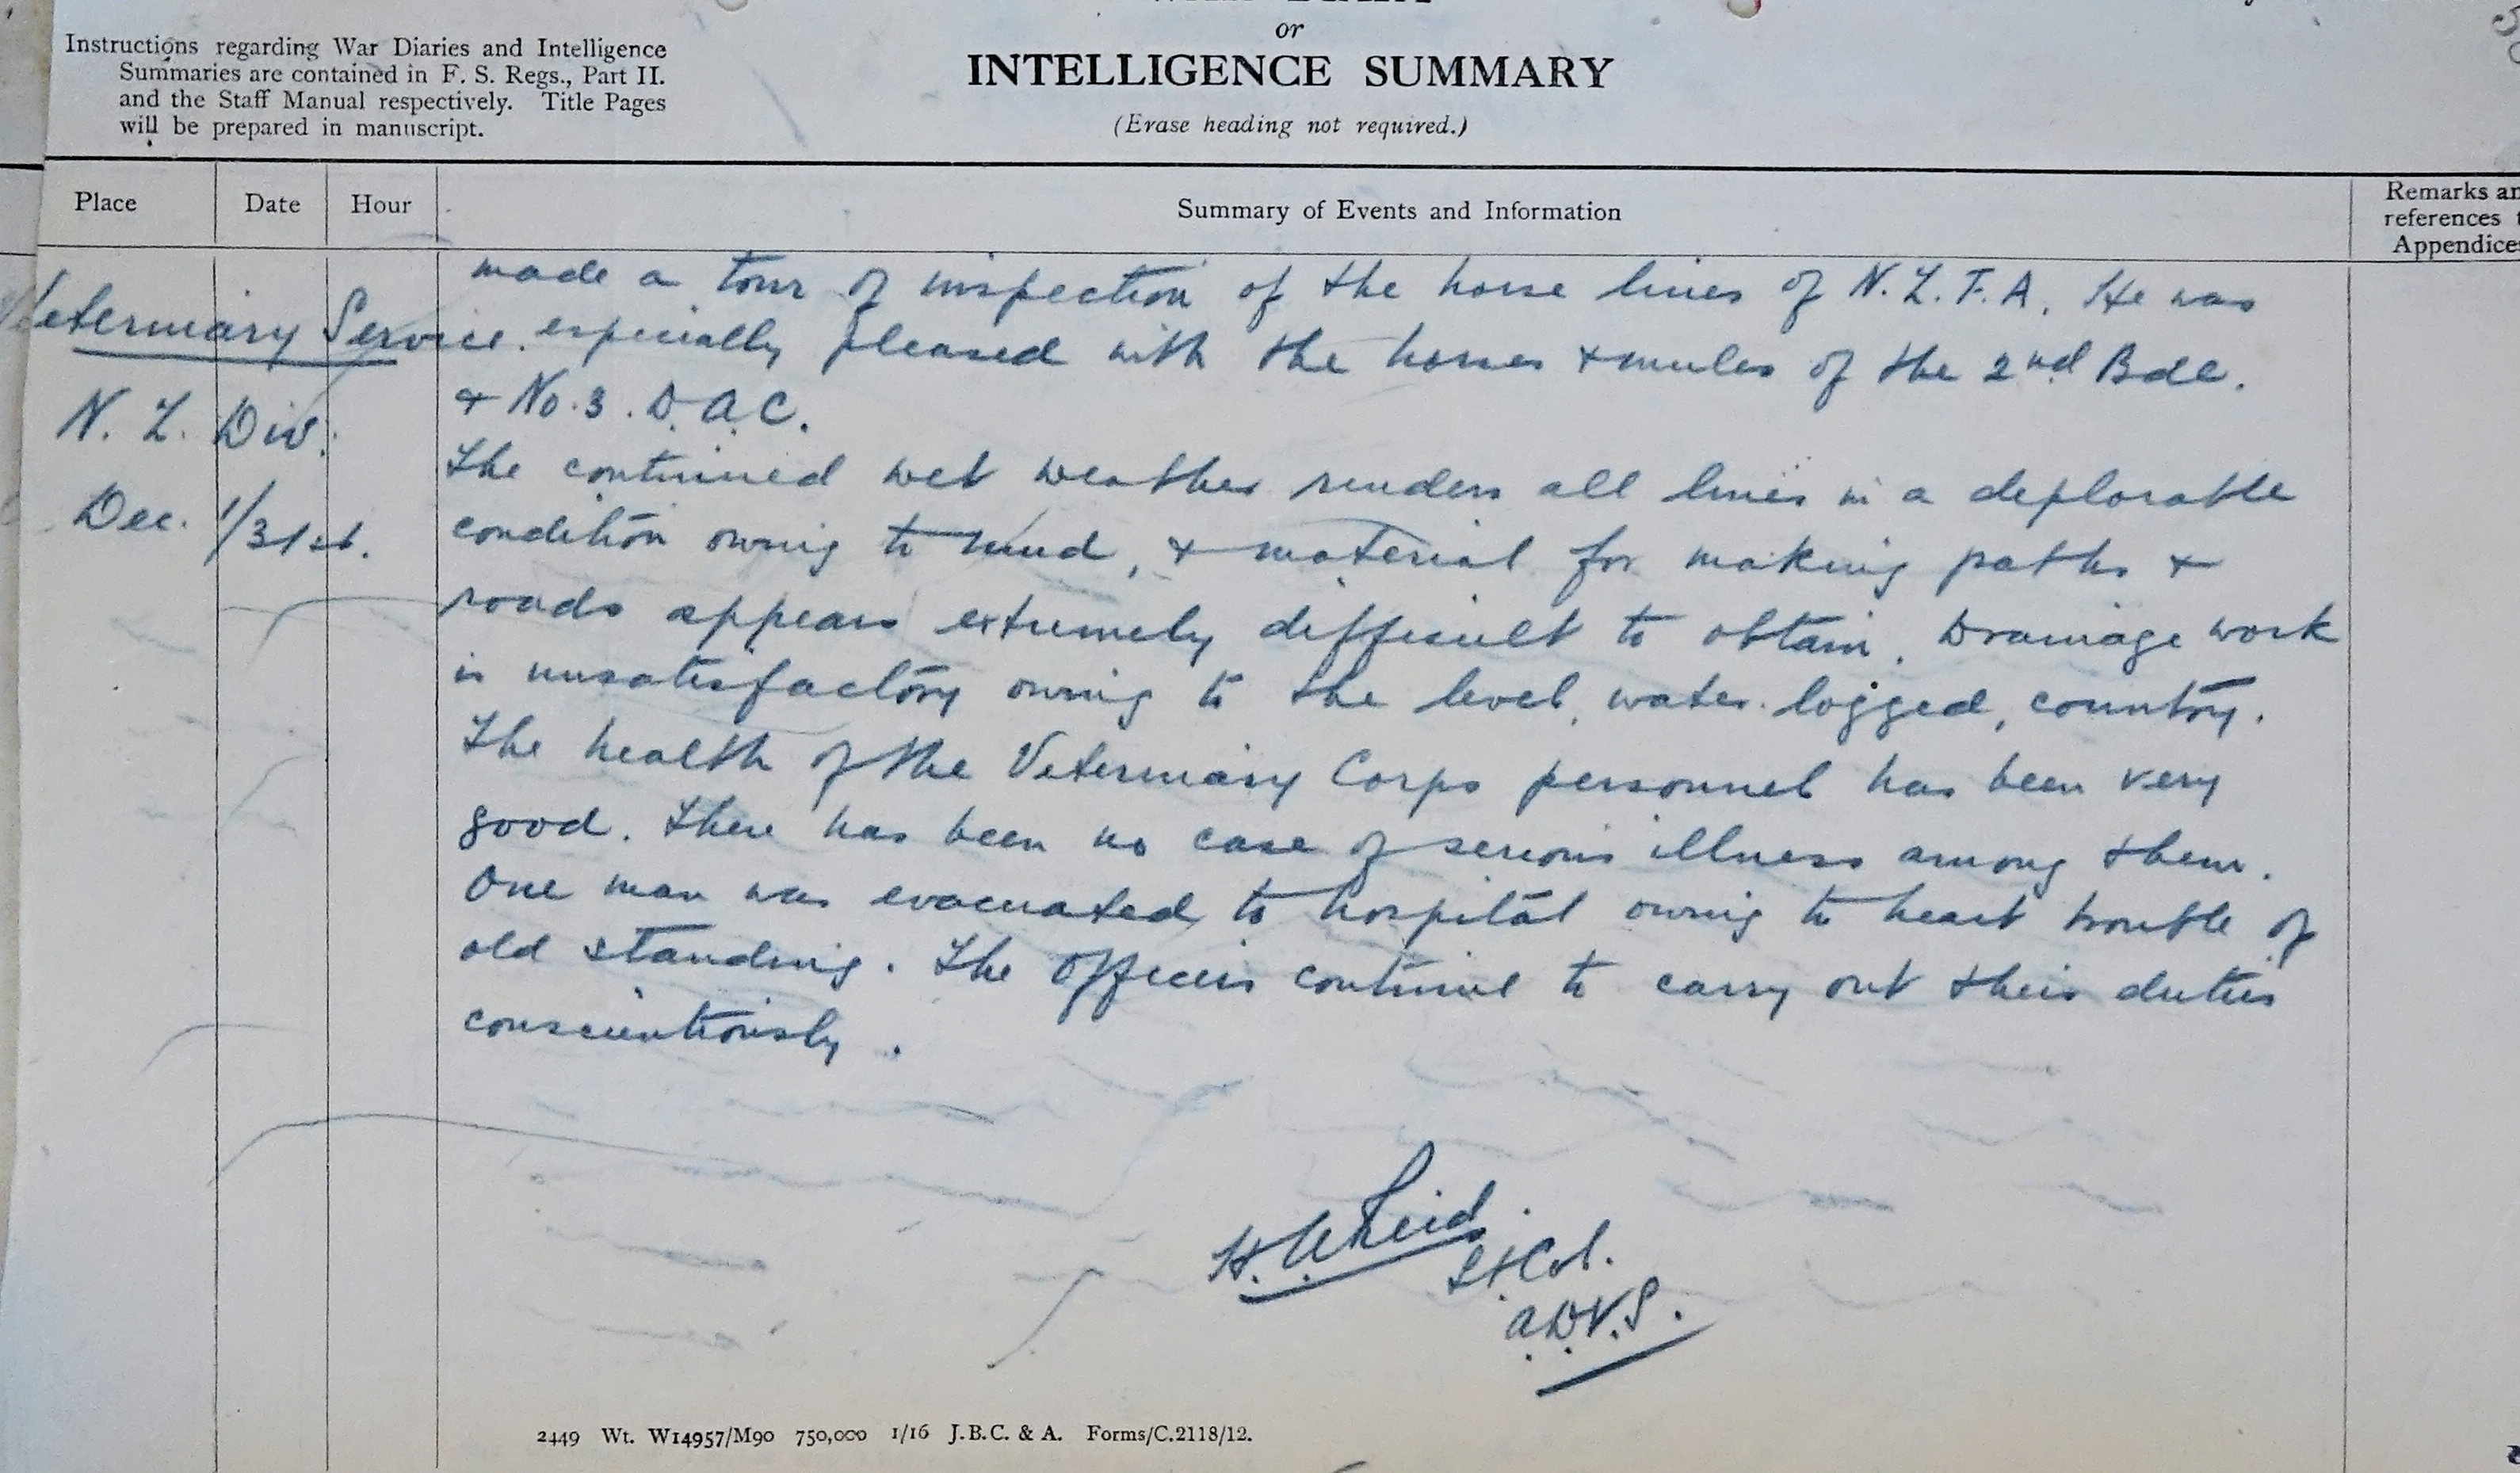 or
INTELLIGENCE SUMMARY
(Erase heading not required.)
Instructions regarding War Diaries and Intelligence
Summaries are contained in F. S. Regs., Part II.
and the Staff Manual respectively. Title Pages
will be prepared in manuscript.
Place Date Hour Summary of Events and Information
Remarks an
references t
Appendices
Veterinary Service.
N. Z. Div.
Dec. 1/31st.
made a tour of inspection of the horse lines of N.Z.F.A. He was
especially pleased with the horses & mules of the 2nd Bde.
& No. 3. D.A.C.
The continued wet weather renders all lines in a deplorable
condition owing to mud, & material for making paths &
roads appears extremely difficult to obtain. Drainage work
is unsatisfactory owing to the level, water-logged, country.
The health of the Veterinary Corps personnel has been very
good. There has been no case of serious illness among them.
One man was evacuated to hospital owing to heart trouble of
old standing. The Officers continue to carry out their duties
conscientiously.
H. A. Reid.
Lt Col.
A.D.V.S.
2449 Wt. W14957/M90 750,000 1/16 J.B.C. & A. Forms/C.2118/12.